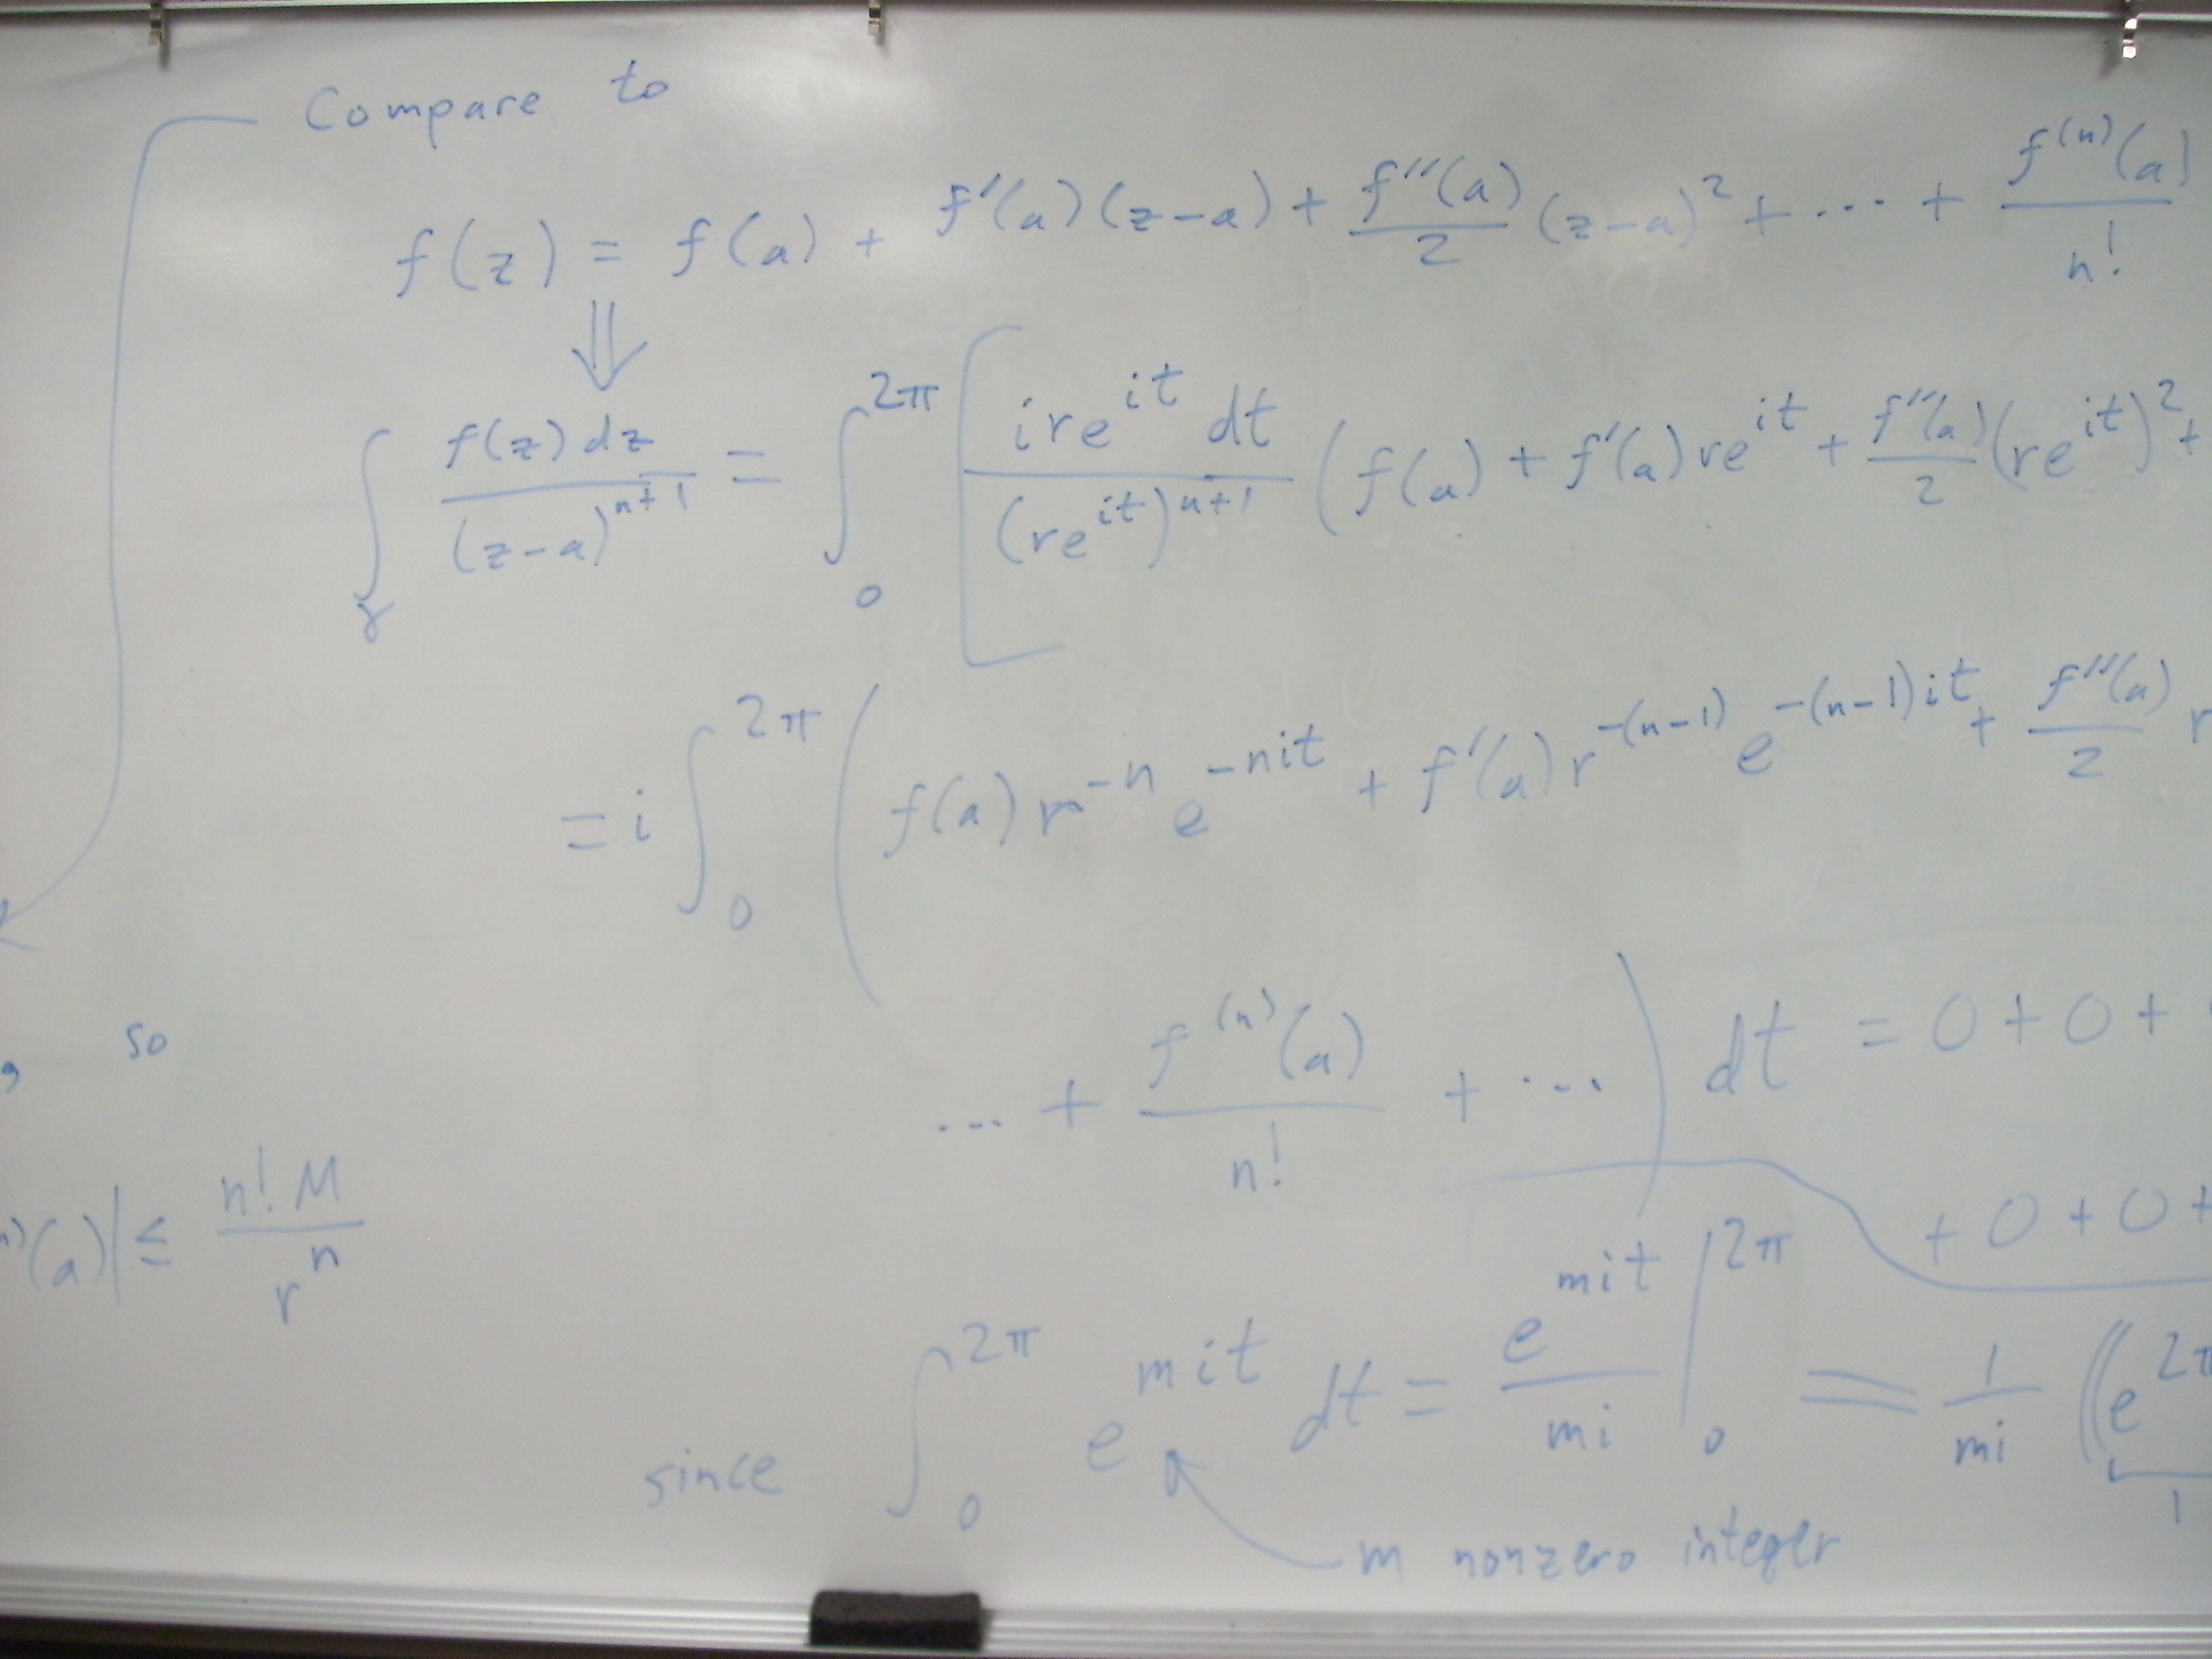 Compare to
f(z) = f(a) + f'(a)(z-a) + f''(a)/2 (z-a)^2 + ... + f^(n)(a)/n!
⇓
∫_γ f(z)dz/(z-a)^{n+1} = ∫_0^{2π} [ ire^{it} dt/(re^{it})^{n+1} (f(a) + f'(a)re^{it} + f''(a)/2 (re^{it})^2 +
= i ∫_0^{2π} ( f(a) r^{-n} e^{-nit} + f'(a) r^{-(n-1)} e^{-(n-1)it} + f''(a)/2 r
, so
... + f^(n)(a)/n! + ... ) dt = 0 + 0 +
(a)| ≤ n! M/r^n
+ 0 + 0 +
since ∫_0^{2π} e^{mit} dt = e^{mit}/mi |_0^{2π} = 1/mi ((e^{2π
1
m nonzero integer